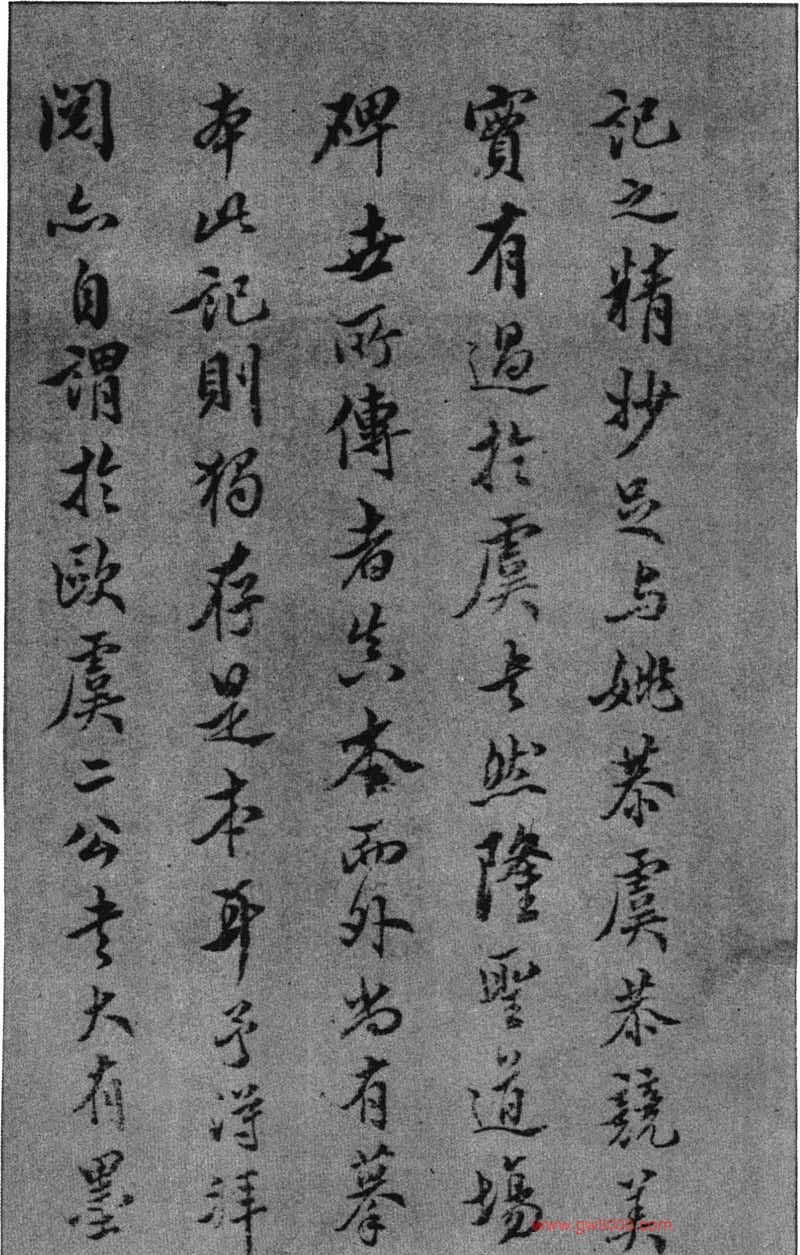 記之精抄足与姚恭虞恭競美
實有過於虞者然隆聖道場
碑世所傳者真本而外尚有摹
本此記則獨存是本耳予得拜
閱亦自謂於歐虞二公者大有墨